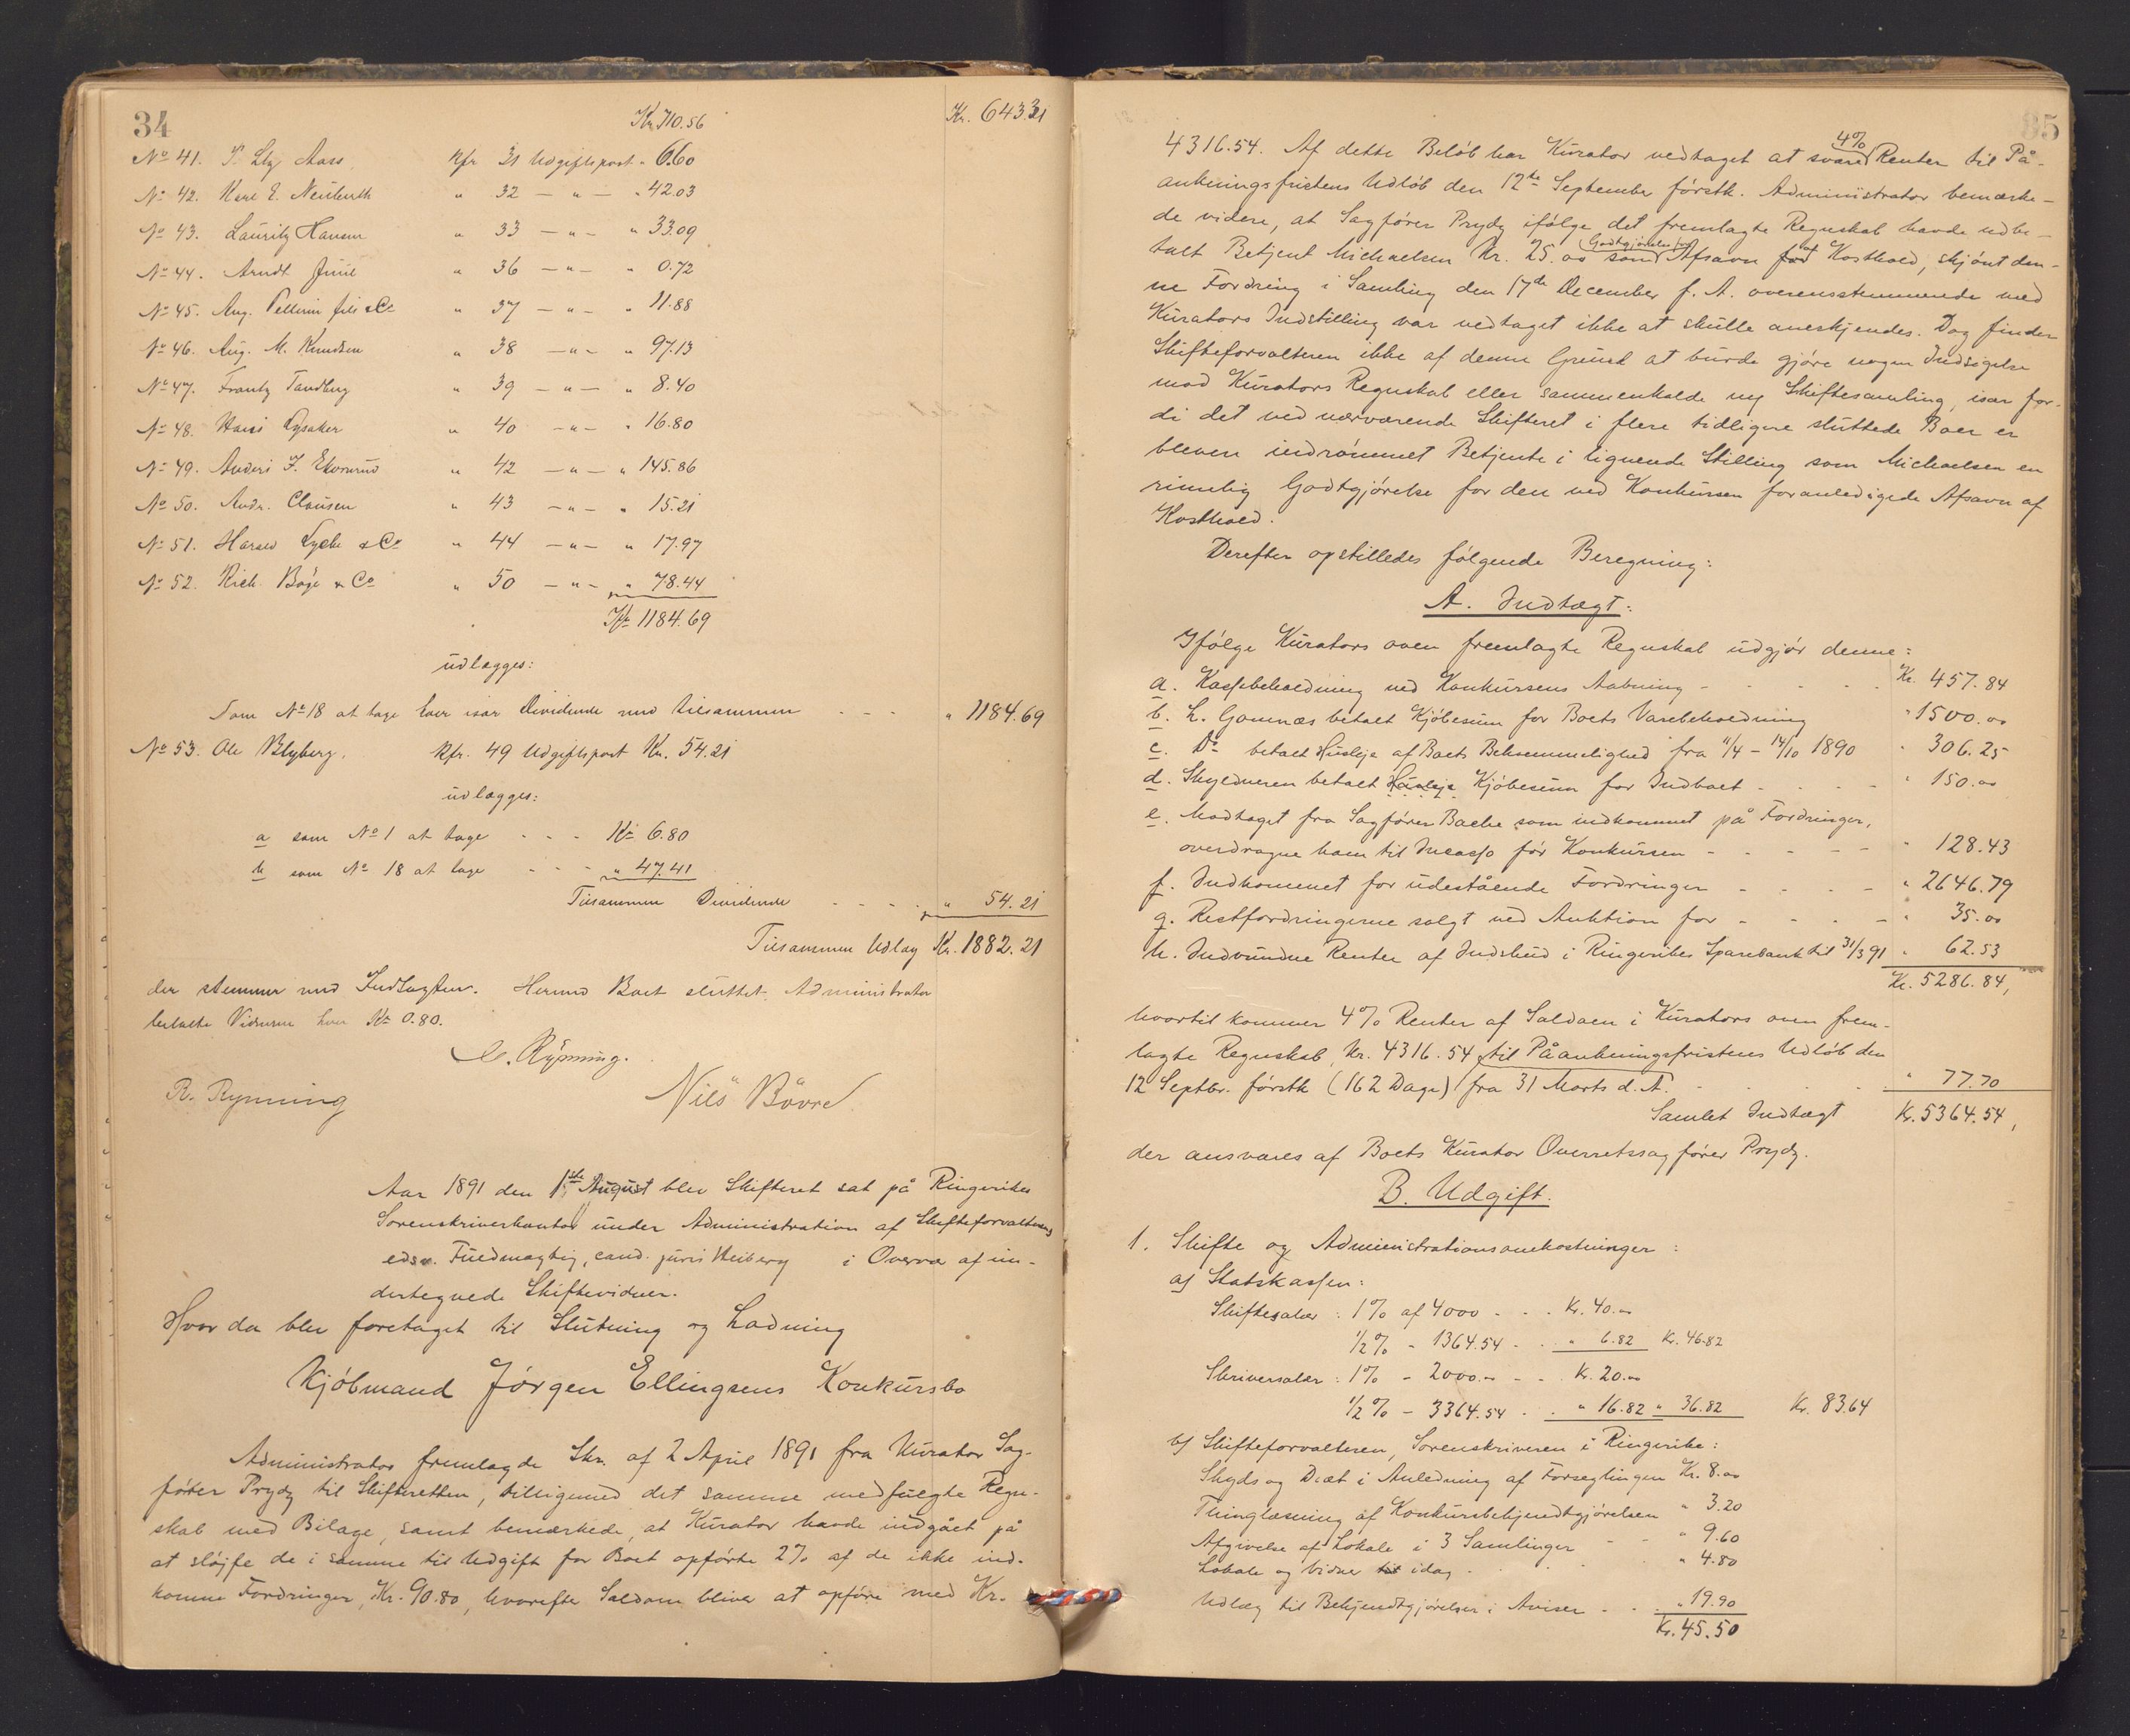 34
Kr. 710.56 Kr. 643.31
No 41. Aass Kfr 31 Udgiftspost " 6.60
No 42. Karl E. Neuberth " 32 — " — " 42.03
No 43. Lauritz Hansen " 33 — " — " 33.09
No 44. Arndt Juul " 36 — " — " 0.72
No 45. Aug. Pellerin fils & Co " 37 — " — " 11.88
No 46. Aug. M. Knudsen " 38 — " — " 97.13
No 47. Frantz Tandberg " 39 — " — " 8.40
No 48. Hans Lysaker " 40 — " — " 16.80
No 49. Anders J. " 42 — " — " 145.86
No 50. Andr. Clausen " 43 — " — " 15.21
No 51. Harald Lyche & Co " 44 — " — " 17.97
No 52. Rich. Bøge & Co " 50 — " — " 78.44
Kr 1184.69
udlægges:
Som No 18 at tage hver især Dividende med tilsammen - - - " 1184.69
No 53. Ole Blyberg. Kfr. 49 Udgiftspost Kr. 54.21
udlægges:
a som No 1 at tage - - - Kr 6.80
b som No 18 at tage - - - " 47.41
Tilsammen Dividende - - - " 54.21
Tilsammen Udlæg Kr. 1882.21
der stemmer med Indtægten. Hermed Boet sluttet. Administrator
betalte Vidnerne hver Kr 0.80.
C. Rynning.
R. Rynning Nils Bövre
Aar 1891 den 1ste August blev Skifteret sat på Ringerikes
Sorenskriverkontor under Administration af Skifteforvalterens
edsv. Fuldmægtig, cand. juris Heiberg i Overvær af un-
dertegnede Skiftevidner.
Hvor da blev foretaget til Slutning og Ladning
Kjöbmand Jörgen Ellingsens Konkursbo
Administrator fremlagde Skr. af 2 April 1891 fra Kurator Sag-
förer Prydz til Skifteretten, tilligemed det samme medfulgte Regn-
skab med Bilage, samt bemærkede, at Kurator havde indgået på
at slöjfe de i samme til Udgift for Boet opförte 2% af de ikke ind-
komne Fordringer, Kr. 90.80, hvorefter Saldoen bliver at opföre med Kr.
35
4316.54. Af dette Belöb har Kurator vedtaget at svare 4% Renter til På-
ankningsfristens Udlöb den 12te September förstk. Administrator bemærke-
de videre, at Sagförer Prydz ifölge det fremlagte Regnskab havde udbe-
talt Betjent Michaelsen Kr. 25.00 som Godtgjörelse for Afsavn af Kosthold, skjönt den-
ne Fordring i Samling den 17de December f. A. overensstemmende med
Kurators Indstilling var vedtaget ikke at skulle anerkjendes. Dog finder
Skifteforvalteren ikke af denne Grund at burde gjöre nogen Indsigelse
mod Kurators Regnskab eller sammenkalde ny Skiftesamling, især for-
di det ved nærværende Skifteret i flere tidligere sluttede Boer er
bleven indrömmet Betjente i lignende Stilling som Michaelsen en
rimelig Godtgjörelse for den ved Konkursen foranledigede Afsavn af
Kosthold.
Derefter opstilledes fölgende Beregning:
A. Indtægt:
Ifölge Kurators oven fremlagte Regnskab udgjör denne:
a. Kassebeholdning ved Konkursens Aabning - - - - - Kr. 457.84
b. L. Gomnæs betalt Kjöbesum for Boets Varebeholdning " 1500.00
c. Do betalt Husleje af Boets Bekvemmelighed fra 11/4 - 14/10 1890 " 306.25
d. Skyldneren betalt Husleje Kjöbesum for Indboet - - - - " 150.00
e. Modtaget fra Sagförer Bache som indkommet på Fordringer,
overdragne ham til Incasso för Konkursen - - - - - " 128.43
f. Indkommet for udestående Fordringer - - - - " 2646.79
g. Restfordringerne solgt ved Auktion for - - - - " 35.00
h. Indvundne Renter af Indskud i Ringerikes Sparebank til 31/3 91 " 62.53
Kr. 5286.84,
hvortil kommer 4% Renter af Saldoen i Kurators oven frem-
lagte Regnskab, Kr. 4316.54, til Påankningsfristens Udlöb den
12 Septbr. förstk (162 Dage) fra 31 Marts d. A. - - - " 77.70
Samlet Indtægt Kr. 5364.54,
der ansvares af Boets Kurator Overretssagförer Prydz.
B. Udgift.
1. Skifte og Administrationsomkostninger:
a) Statskassen:
Skiftesalær: 1% af 4000 - - - Kr. 40.00
1/2% - 1364.54 - - " 6.82 Kr. 46.82
Skriversalær: 1% - 2000.00 - - Kr. 20.00
1/2% - 3364.54 - - " 16.82 " 36.82 Kr. 83.64
b) Skifteforvalteren, Sorenskriveren i Ringerike:
Skyds og Diæt i Anledning af Forseglingen Kr. 8.00
Thinglæsning af Konkursbekjendtgjörelsen " 3.20
Afgivelse af Lokale i 3 Samlinger - - " 9.60
Lokale og Vidner til idag - - - " 4.80
Udlæg til Bekjendtgjörelser i Aviser - - " 19.90
Kr. 45.50